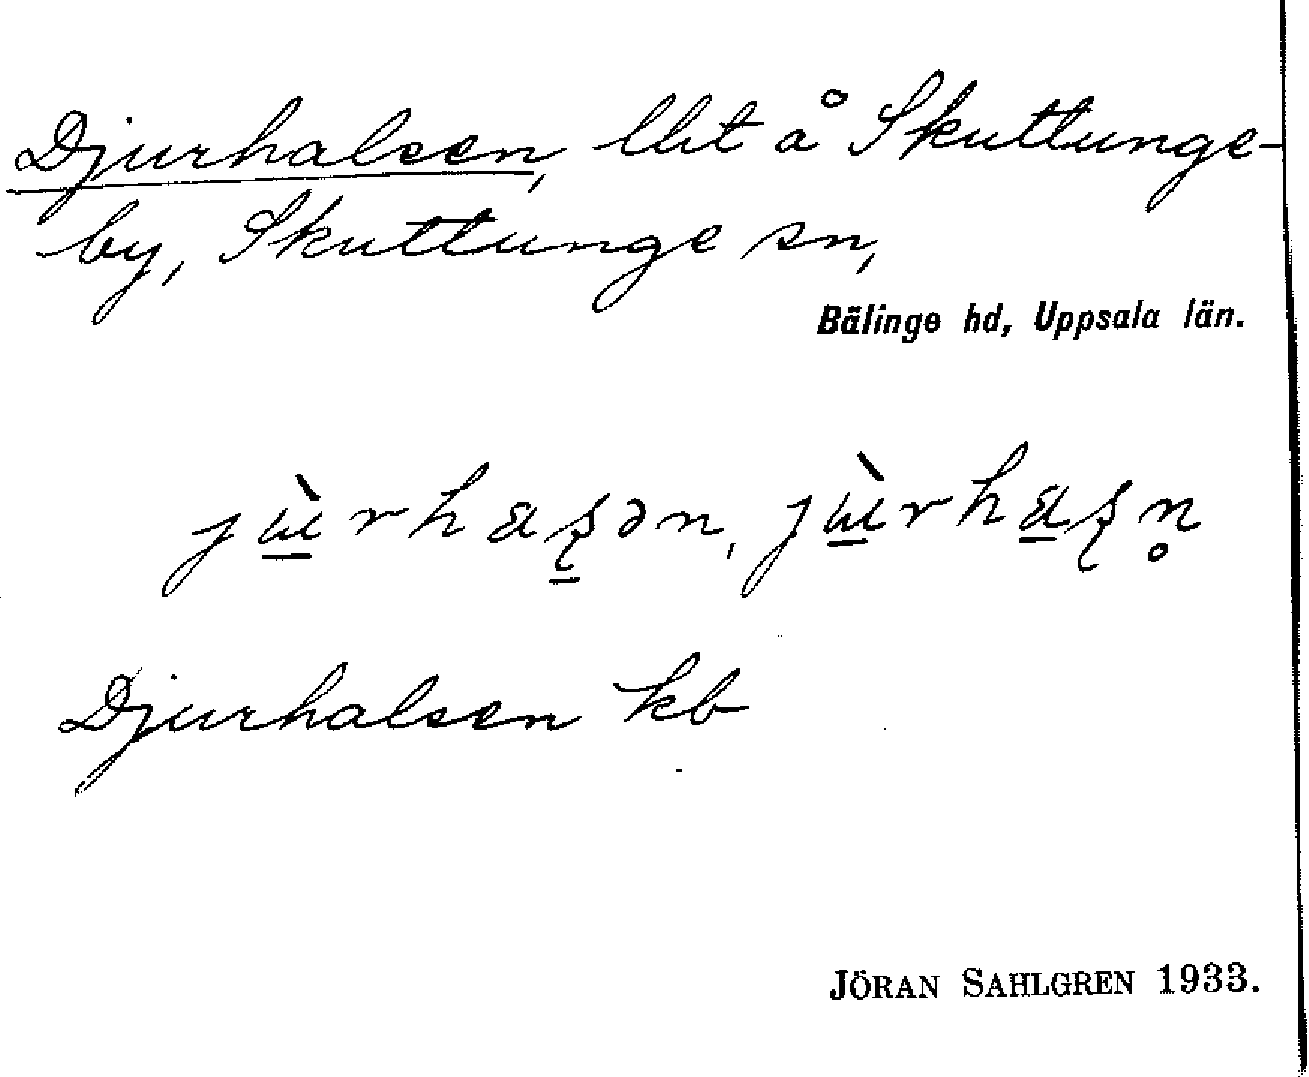 Djurhalsen, lht å Skuttunge-
by, Skuttunge sn,
Bälinge hd, Uppsala län.
Djurhalsen kb
JÖRAN SAHLGREN 1933.